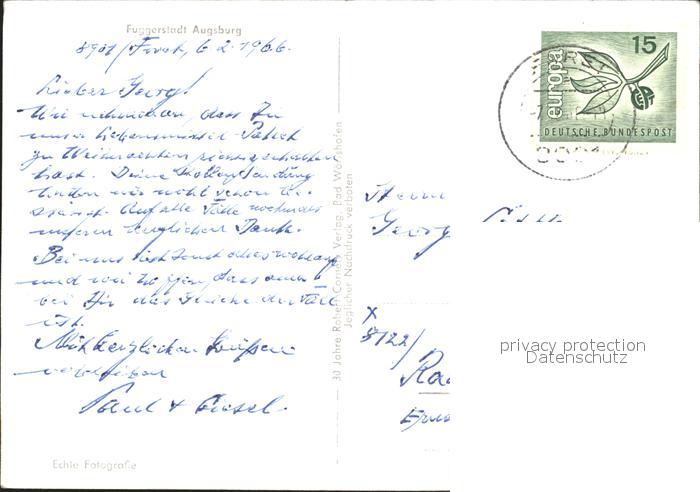 Fuggerstadt Augsburg
8901/ 6.2.1966.
Lieber Georg!
Wir nehmen an, dass Du
unser Lebensmittel-Paket
zu Weihnachten erhalten
hast. Deine Stollensendung
hatten wir wohl schon be-
stätigt. Auf alle Fälle nochmals
unseren herzlichen Dank.
Bei uns ist sonst alles wohlauf
und wir hoffen, dass auch
bei Dir das Gleiche der Fall
ist.
Mit herzlichen Grüßen
verbleiben
Paul +
Echte Fotografie
30 Jahre Robert Cornely Verlag, Bad Wörishofen
Jeglicher Nachdruck verboten
15
europa
DEUTSCHE BUNDESPOST
Herrn
Georg
X
8122/
privacy protection
Datenschutz